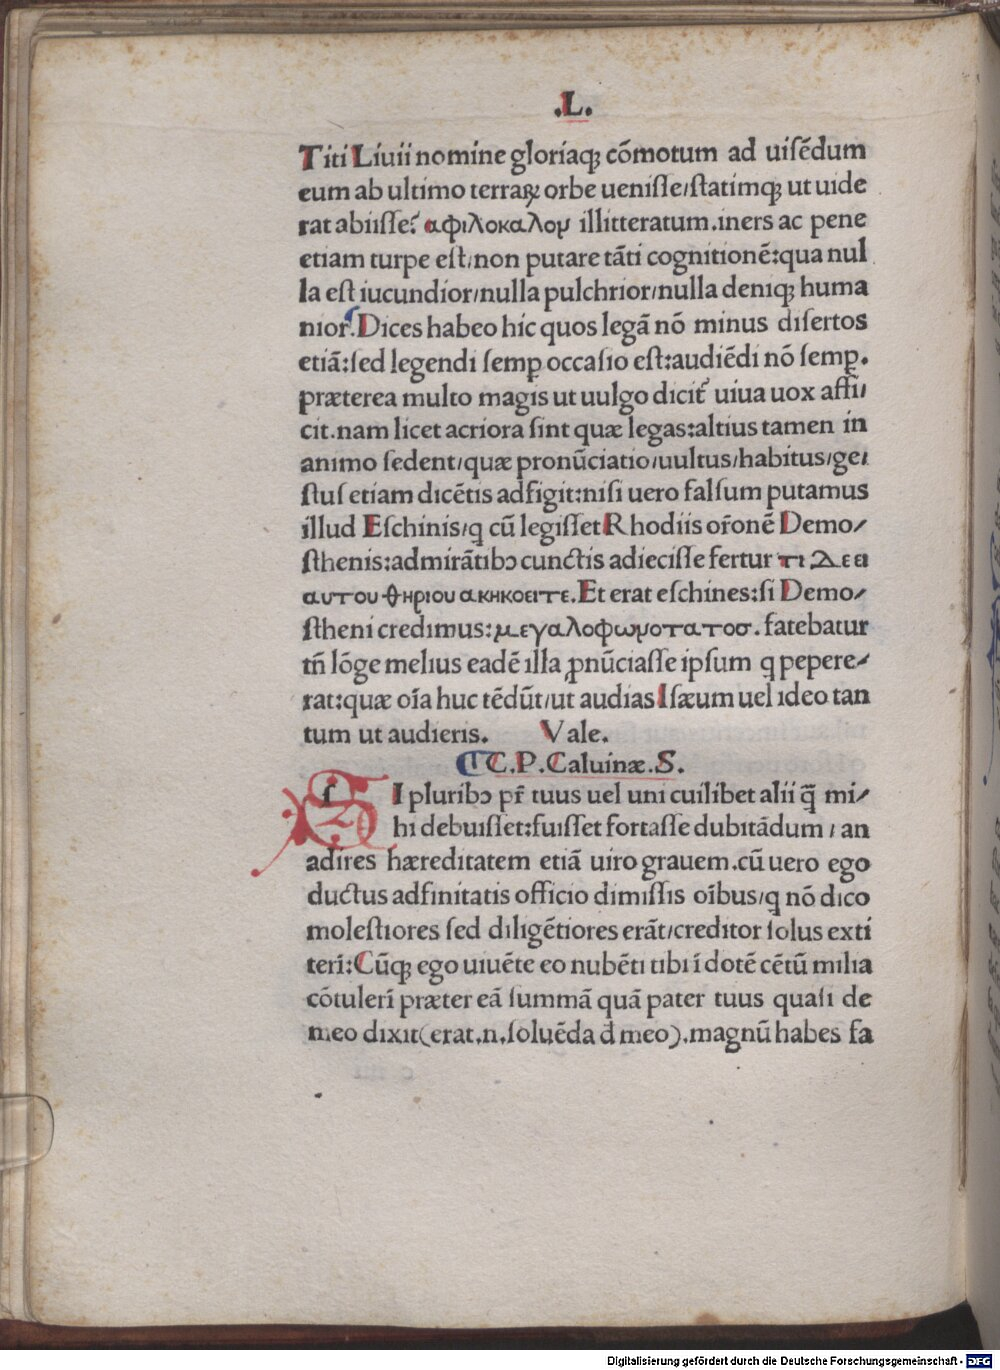 .L.
Titi Liuii nomine gloriaqꝫ cõmotum ad uiſẽdum
eum ab ultimo terraꝝ orbe ueniſſe/ſtatimqꝫ ut uide
rat abiiſſe. αφιλοκαλον illitteratum.iners ac pene
etiam turpe eſt/non putare tãti cognitionẽ:qua nul
la eſt iucundior/nulla pulchrior/nulla deniqꝫ huma
nior. Dices habeo hic quos legã nõ minus diſertos
etiã:ſed legendi ſemꝑ occaſio eſt:audiẽdi nõ ſemꝑ.
præterea multo magis ut uulgo dicit᷑ uiua uox affi/
cit.nam licet acriora ſint quæ legas:altius tamen in
animo ſedent/quæ pronũciatio/uultus/habitus/ge/
ſtuſ etiam dicẽtis adfigit:niſi uero falſum putamus
illud Eſchinis/q̣ cũ legiſſet Rhodiis or̃onẽ Demo/
ſthenis:admirãtibꝰ cunctis adieciſſe fertur τι Δεει
αυτου θηριου ακηκοειτε.Et erat eſchines:ſi Demo/
ſtheni credimus:μεγαλοφωνοτατοσ. fatebatur
tñ lõge melius eadẽ illa ꝓnũciaſſe ipſum q̣ pepere/
rat:quæ oĩa huc tẽdũt/ut audias Iſæum uel ideo tan
tum ut audieris. Vale.
C.P.Caluinæ.S.
SI pluribꝰ pr̃ tuus uel uni cuilibet alii q̃ mi/
hi debuiſſet:fuiſſet fortaſſe dubitãdum / an
adires hæreditatem etiã uiro grauem.cũ uero ego
ductus adfinitatis officio dimiſſis oĩbus/q̣ nõ dico
moleſtiores ſed diligẽtiores erãt/creditor ſolus exti
terĩ:Cũqꝫ ego uiuẽte eo nubẽti tibi ĩ dotẽ cẽtũ milia
cõtulerĩ præter eã ſummã quã pater tuus quaſi de
meo dixit(erat.n.ſoluẽda đ meo).magnũ habes fa
Digitalisierung gefördert durch die Deutsche Forschungsgemeinschaft - DFG